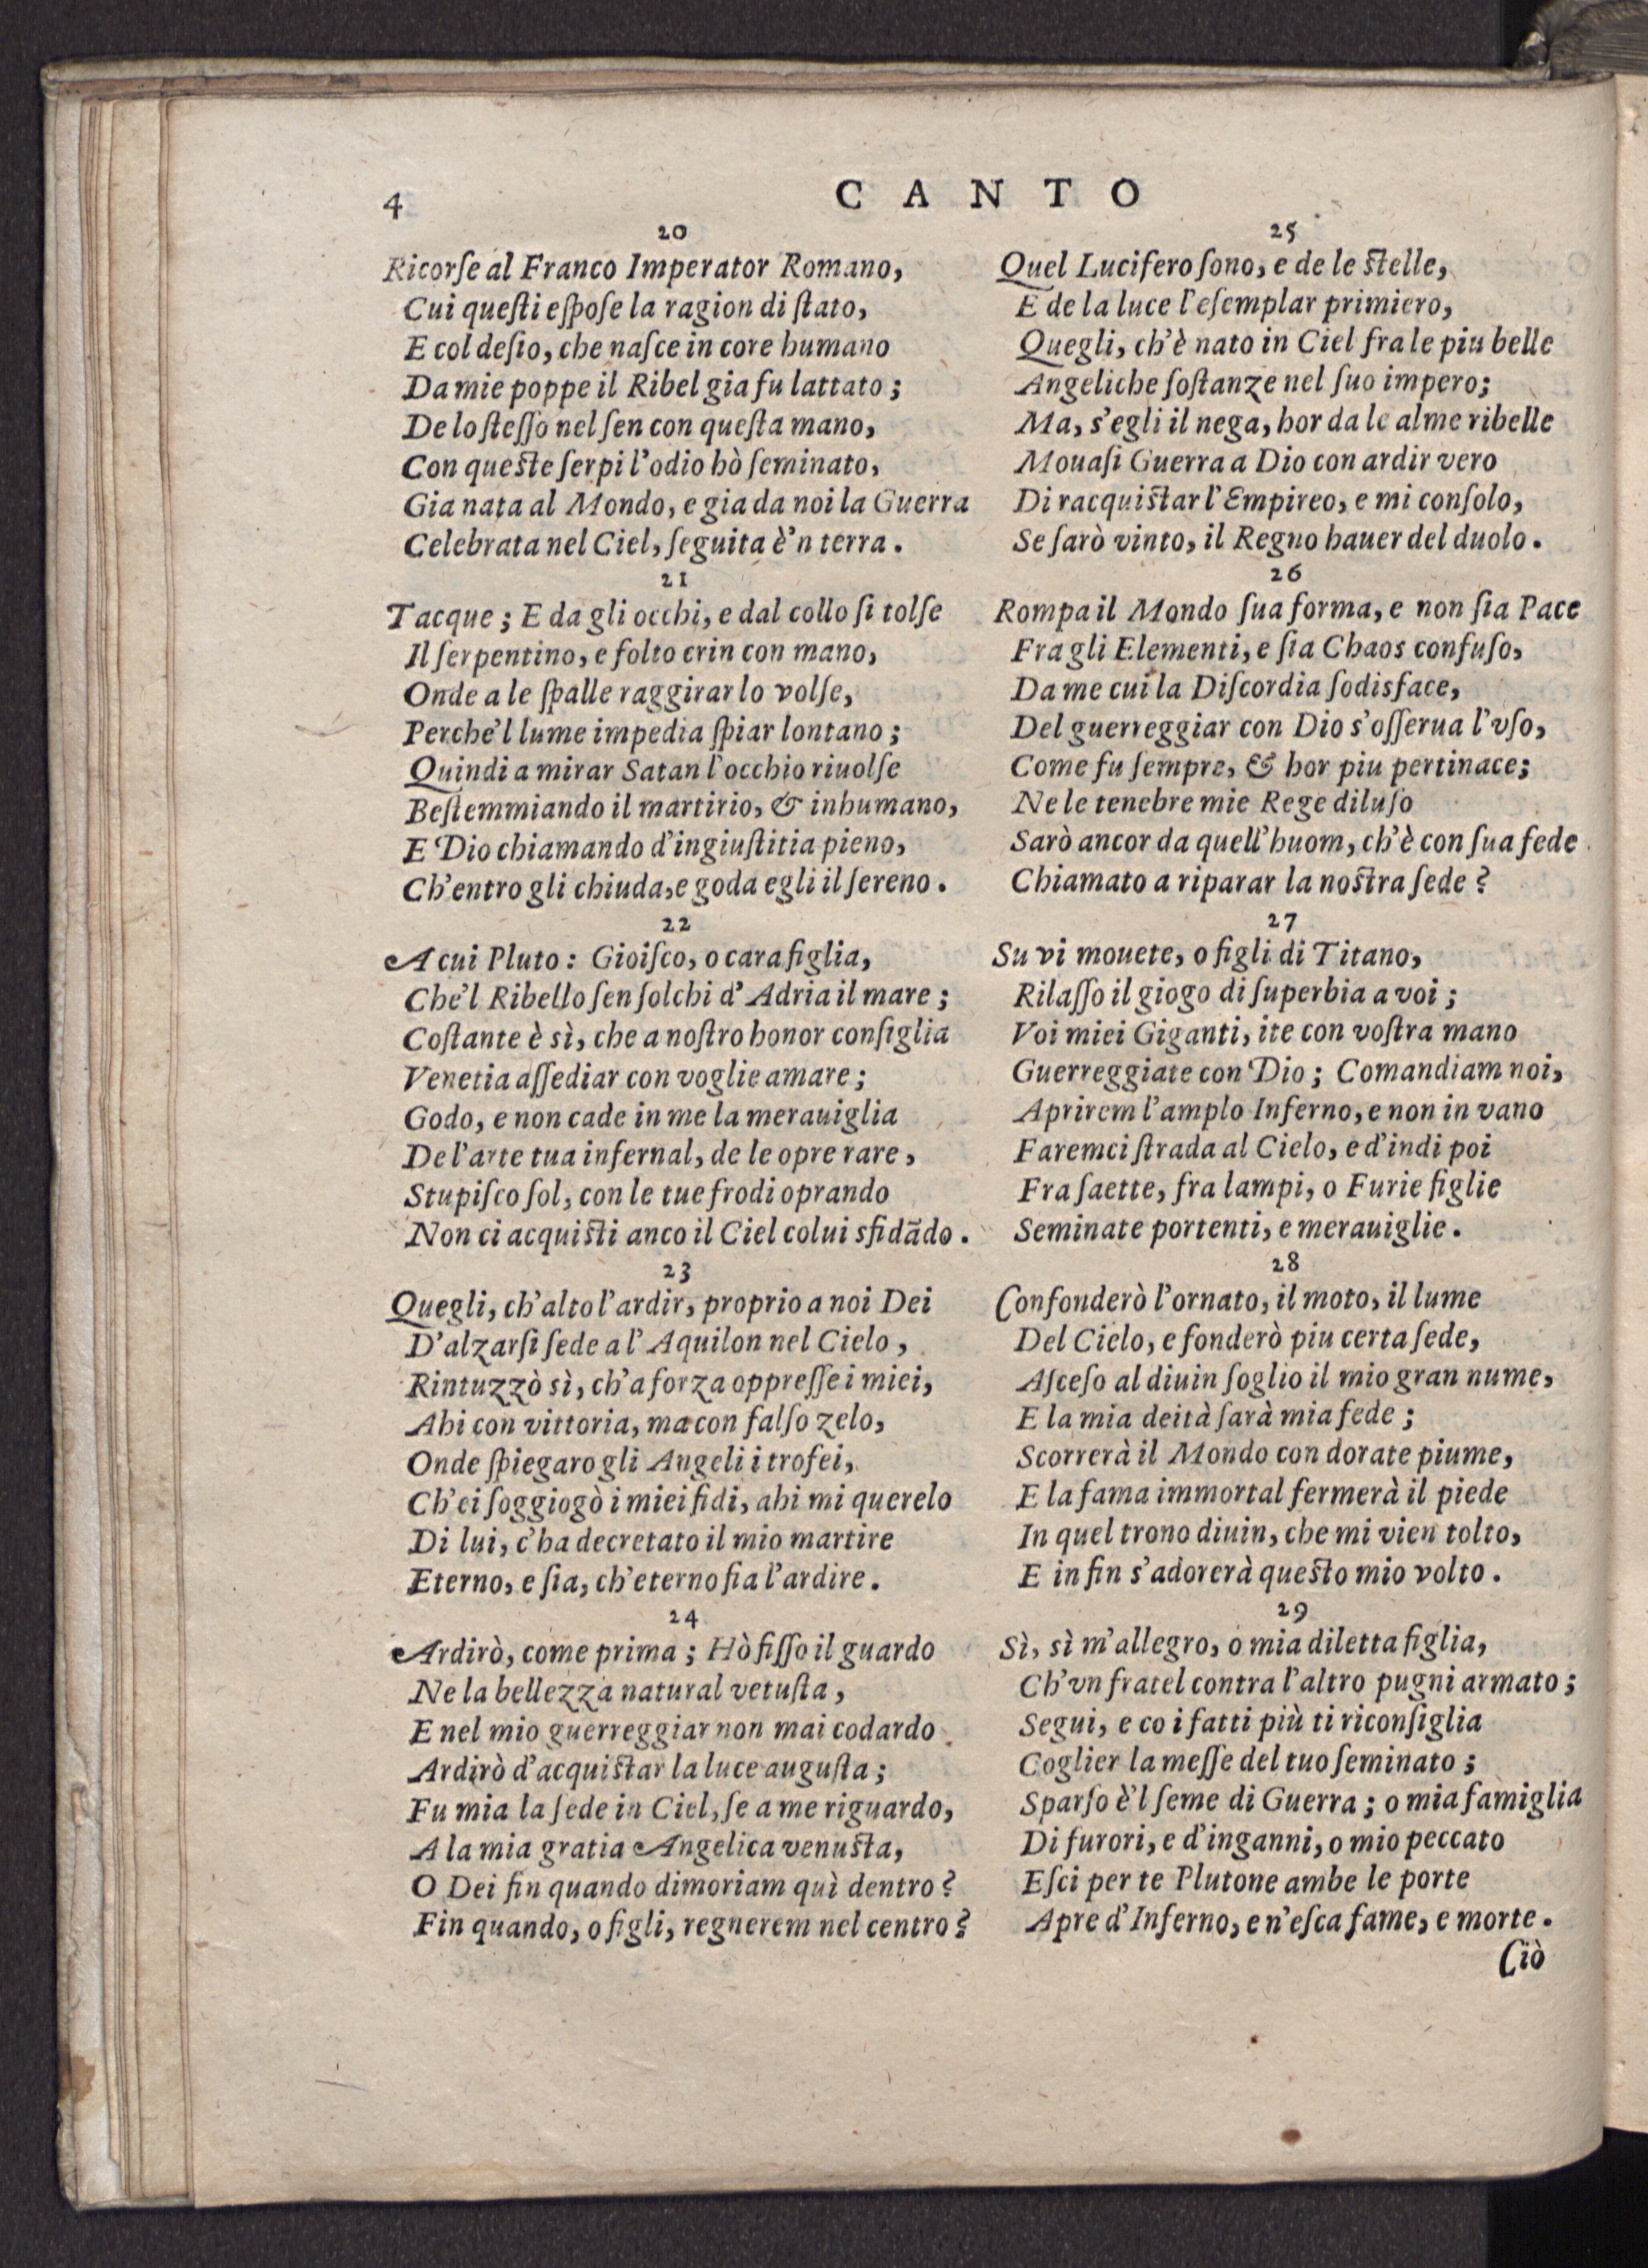 4
CANTO
20
Ricorſe al Franco Imperator Romano,
Cui queſti eſpoſe la ragion di ſtato,
E col deſio, che naſce in core humano
Da mie poppe il Ribel gia fu lattato;
De lo ſteſſo nel ſen con queſta mano,
Con queſte ſerpi l'odio hò ſeminato,
Gia nata al Mondo, e gia da noi la Guerra
Celebrata nel Ciel, ſeguita è'n terra.
21
Tacque; E da gli occhi, e dal collo ſi tolſe
Il ſerpentino, e folto crin con mano,
Onde a le ſpalle raggirar lo volſe,
Perche'l lume impedia ſpiar lontano;
Quindi a mirar Satan l'occhio riuolſe
Beſtemmiando il martirio, & inhumano,
E Dio chiamando d'ingiuſtitia pieno,
Ch'entro gli chiuda, e goda egli il ſereno.
22
A cui Pluto: Gioiſco, o cara figlia,
Che'l Ribello ſen ſolchi d'Adria il mare;
Coſtante è sì, che a noſtro honor conſiglia
Venetia aſſediar con voglie amare;
Godo, e non cade in me la merauiglia
De l'arte tua infernal, de le opre rare,
Stupiſco ſol, con le tue frodi oprando
Non ci acquiſti anco il Ciel colui sfidãdo.
23
Quegli, ch'alto l'ardir, proprio a noi Dei
D'alzarſi ſede a l'Aquilon nel Cielo,
Rintuzzò sì, ch'a forza oppreſſe i miei,
Ahi con vittoria, ma con falſo zelo,
Onde ſpiegaro gli Angeli i trofei,
Ch'ei ſoggiogò i miei fidi, ahi mi querelo
Di lui, c'ha decretato il mio martire
Eterno, e ſia, ch'eterno fia l'ardire.
24
Ardirò, come prima; Hò fiſſo il guardo
Ne la bellezza natural vetuſta,
E nel mio guerreggiar non mai codardo
Ardirò d'acquiſtar la luce auguſta;
Fu mia la ſede in Ciel, ſe a me riguardo,
A la mia gratia Angelica venuſta,
O Dei fin quando dimoriam quì dentro?
Fin quando, o figli, regnerem nel centro?
25
Quel Lucifero ſono, e de le ſtelle,
E de la luce l'eſemplar primiero,
Quegli, ch'è nato in Ciel fra le piu belle
Angeliche ſoſtanze nel ſuo impero;
Ma, s'egli il nega, hor da le alme ribelle
Mouaſi Guerra a Dio con ardir vero
Di racquiſtar l'Empireo, e mi conſolo,
Se ſarò vinto, il Regno hauer del duolo.
26
Rompa il Mondo ſua forma, e non ſia Pace
Fra gli Elementi, e ſia Chaos confuſo,
Da me cui la Diſcordia ſodisface,
Del guerreggiar con Dio s'oſſerua l'vſo,
Come fu ſempre, & hor piu pertinace;
Ne le tenebre mie Rege diluſo
Sarò ancor da quell'huom, ch'è con ſua fede
Chiamato a riparar la noſtra ſede?
27
Su vi mouete, o figli di Titano,
Rilaſſo il giogo di ſuperbia a voi;
Voi miei Giganti, ite con voſtra mano
Guerreggiate con Dio; Comandiam noi,
Aprirem l'amplo Inferno, e non in vano
Faremci ſtrada al Cielo, e d'indi poi
Fra ſaette, fra lampi, o Furie figlie
Seminate portenti, e merauiglie.
28
Confonderò l'ornato, il moto, il lume
Del Cielo, e fonderò piu certa ſede,
Aſceſo al diuin ſoglio il mio gran nume,
E la mia deità ſarà mia fede;
Scorrerà il Mondo con dorate piume,
E la fama immortal fermerà il piede
In quel trono diuin, che mi vien tolto,
E in fin s'adorerà queſto mio volto.
29
Sì, sì m'allegro, o mia diletta figlia,
Ch'vn fratel contra l'altro pugni armato;
Segui, e co i fatti più ti riconſiglia
Coglier la meſſe del tuo ſeminato;
Sparſo è'l ſeme di Guerra; o mia famiglia
Di furori, e d'inganni, o mio peccato
Eſci per te Plutone ambe le porte
Apre d'Inferno, e n'eſca fame, e morte.
Ciò